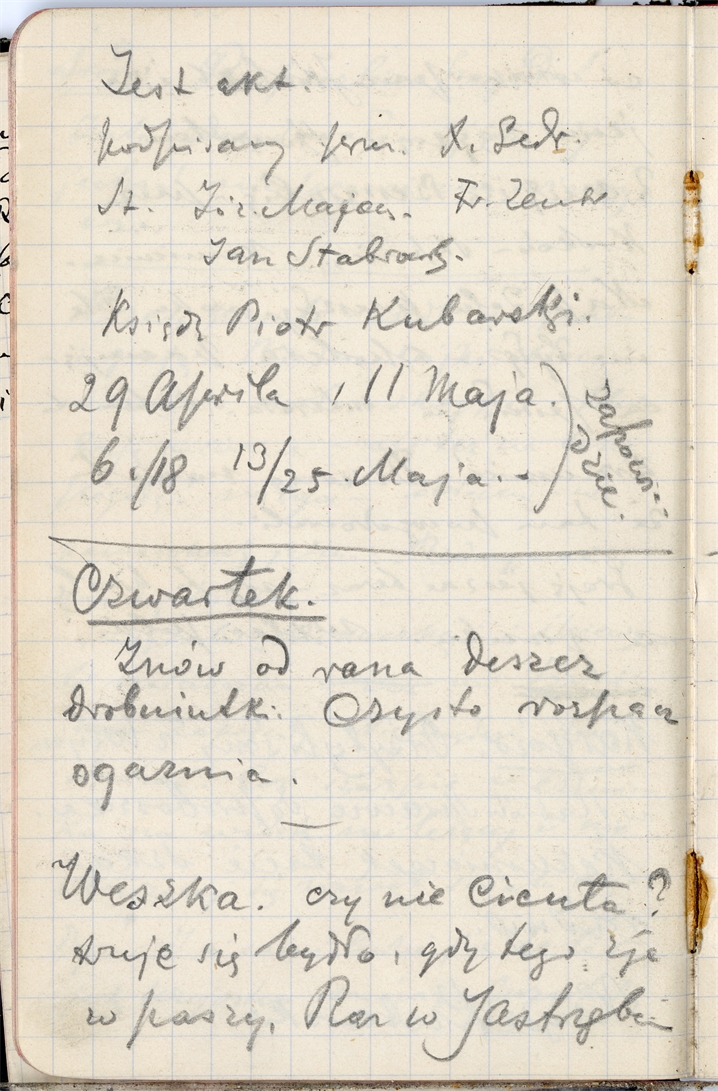 Jest akt.
podpisany przez. X. Sedr.
St. Józ. Majew. Fr. Zentr
Jan Stabrowsk.
Ksiądz Piotr Kubarski.
29 Aprila, 11 Maja.
6./18 13/25. Maja..
zapowie-
dzie.
Czwartek.
Znów od rana deszcz
drobniutki. Czysto rozpacz
ogarnia.
Weszka. czy nie Cicuta?
truje się bydło, gdy tego zje
w paszy. Raz w Jastrzębiu